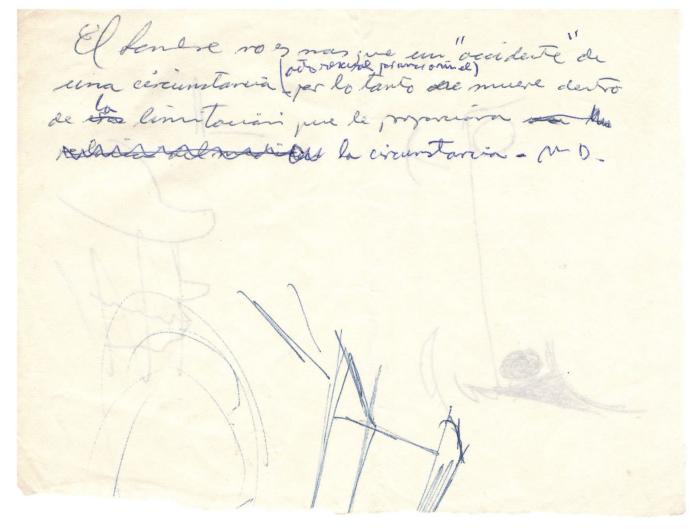 El hombre no es mas que un "accidente" de
(acto sexual
una circunstancia - por lo tanto se muere dentro
de la limitación que le proporciona
la circunstancia - M D.